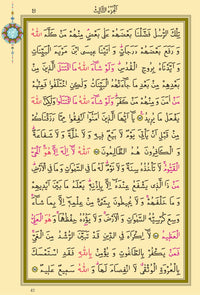 الجزء الثالث
تِلْكَ الرُّسُلُ فَضَّلْنَا بَعْضَهُمْ عَلَى بَعْضٍ مِنْهُمْ مَنْ كَلَّمَ اللَّهُ
وَرَفَعَ بَعْضَهُمْ دَرَجَاتٍ وَآتَيْنَا عِيسَى ابْنَ مَرْيَمَ الْبَيِّنَاتِ
وَأَيَّدْنَاهُ بِرُوحِ الْقُدُسِ وَلَوْ شَاءَ اللَّهُ مَا اقْتَتَلَ الَّذِينَ مِنْ
بَعْدِهِمْ مِنْ بَعْدِ مَا جَاءَتْهُمُ الْبَيِّنَاتُ وَلَكِنِ اخْتَلَفُوا فَمِنْهُمْ
مَنْ آمَنَ وَمِنْهُمْ مَنْ كَفَرَ وَلَوْ شَاءَ اللَّهُ مَا اقْتَتَلُوا وَلَكِنَّ اللَّهَ
يَفْعَلُ مَا يُرِيدُ يَا أَيُّهَا الَّذِينَ آمَنُوا أَنْفِقُوا مِمَّا رَزَقْنَاكُمْ
مِنْ قَبْلِ أَنْ يَأْتِيَ يَوْمٌ لَا بَيْعٌ فِيهِ وَلَا خُلَّةٌ وَلَا شَفَاعَةٌ
وَالْكَافِرُونَ هُمُ الظَّالِمُونَ اللَّهُ لَا إِلَهَ إِلَّا هُوَ الْحَيُّ
الْقَيُّومُ لَا تَأْخُذُهُ سِنَةٌ وَلَا نَوْمٌ لَهُ مَا فِي السَّمَاوَاتِ وَمَا فِي الْأَرْضِ
مَنْ ذَا الَّذِي يَشْفَعُ عِنْدَهُ إِلَّا بِإِذْنِهِ يَعْلَمُ مَا بَيْنَ أَيْدِيهِمْ
وَمَا خَلْفَهُمْ وَلَا يُحِيطُونَ بِشَيْءٍ مِنْ عِلْمِهِ إِلَّا بِمَا شَاءَ
وَسِعَ كُرْسِيُّهُ السَّمَاوَاتِ وَالْأَرْضَ وَلَا يَئُودُهُ حِفْظُهُمَا وَهُوَ الْعَلِيُّ
الْعَظِيمُ لَا إِكْرَاهَ فِي الدِّينِ قَدْ تَبَيَّنَ الرُّشْدُ مِنَ الْغَيِّ
فَمَنْ يَكْفُرْ بِالطَّاغُوتِ وَيُؤْمِنْ بِاللَّهِ فَقَدِ اسْتَمْسَكَ
بِالْعُرْوَةِ الْوُثْقَى لَا انْفِصَامَ لَهَا وَاللَّهُ سَمِيعٌ عَلِيمٌ